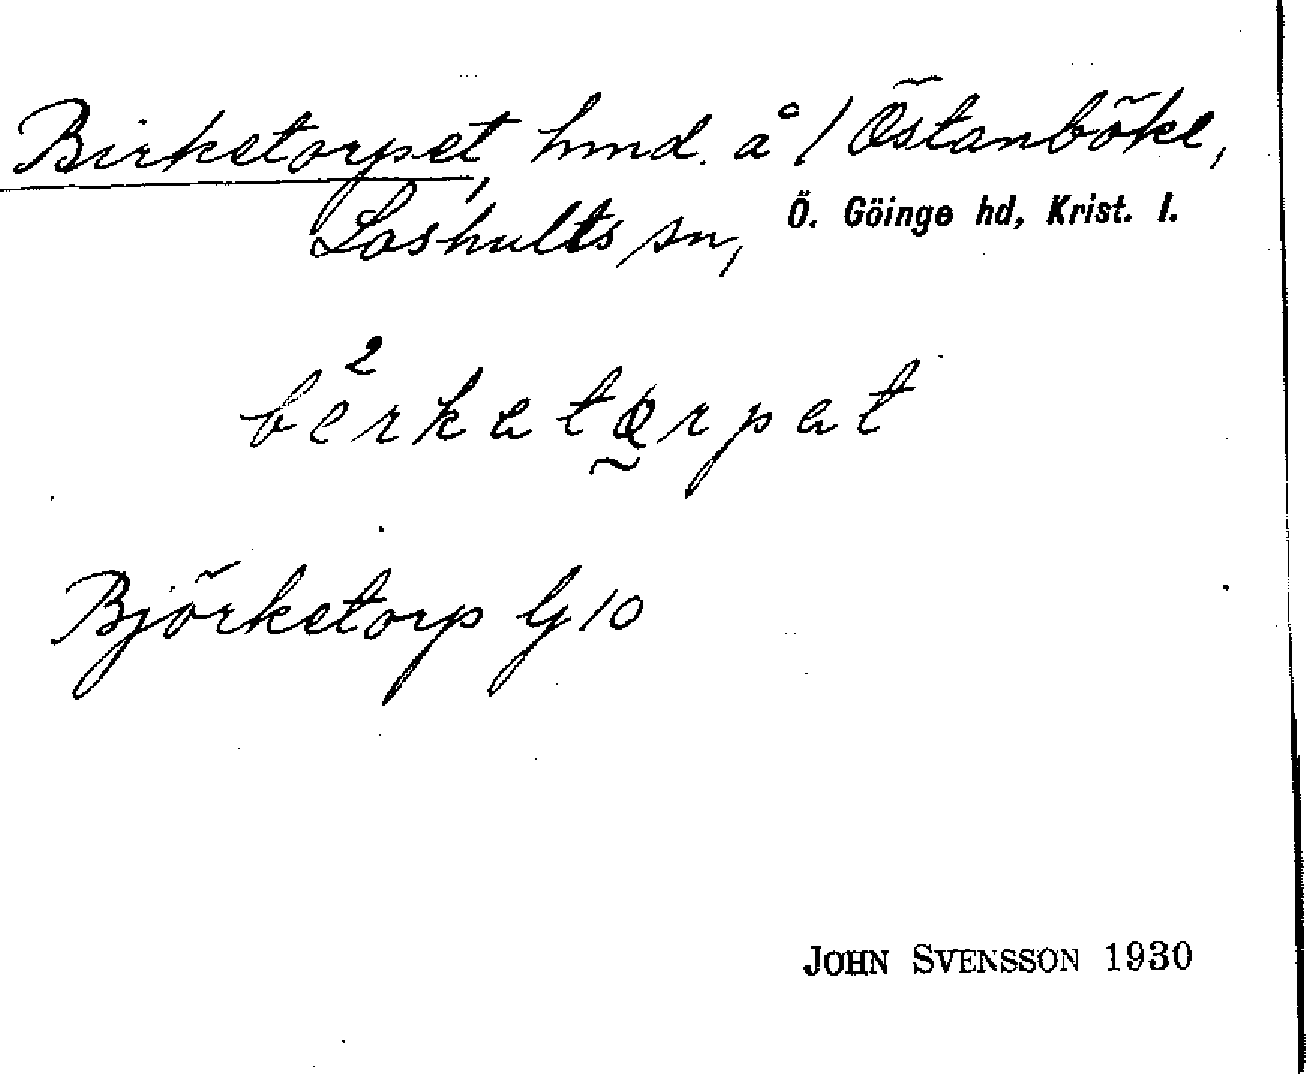 Birketorpet, hmd. å 1 Östanböke,
Loshults sn, Ö. Göinge hd, Krist. l.
2
berkatorpat
Björketorp G 10
JOHN SVENSSON 1930